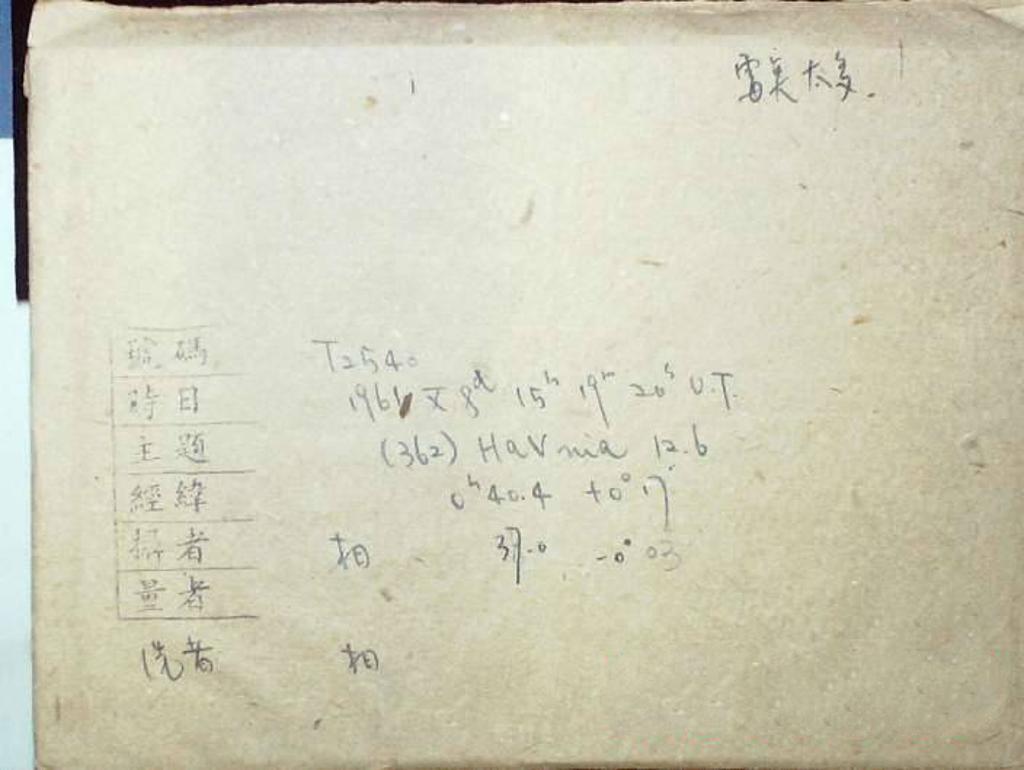 太多.
號碼 T2540
時日 1961 X 8ᵈ 15ʰ 19ᵐ 20ˢ U.T.
主題 (362) Havnia 12.6
經緯 0ʰ40.4 +0°17'
攝者 相 39.0 -0°03
量者
洗者 相